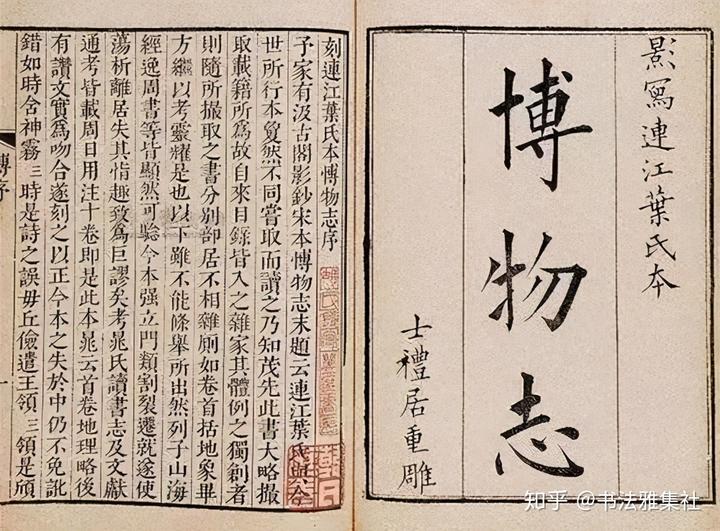 影寫連江葉氏本
博物志
士禮居重雕
刻連江葉氏本博物志序
予家有汲古閣影鈔宋本博物志末題云連江葉氏與今
世所行本夐然不同嘗取而讀之乃知茂先此書大略撮
取載籍所為故自來目錄皆入之雜家其體例之獨創者
則隨所撮取之書分別部居不相雜廁如卷首括地象畢
方繼以考靈耀是也以下雖不能條舉所出然列子山海
經逸周書等皆顯然可驗今本强立門類割裂遷就遂使
蕩析離居失其指趣致為巨謬矣考晁氏讀書志及文獻
通考皆載周日用注十卷即是此本晁云首卷地理略後
有讚文實為吻合遂刻之以正今本之失於中仍不免訛
錯如時含神霧三時是詩之誤毋丘儉遣王領三領是頎
博序
一
知乎 @书法雅集社